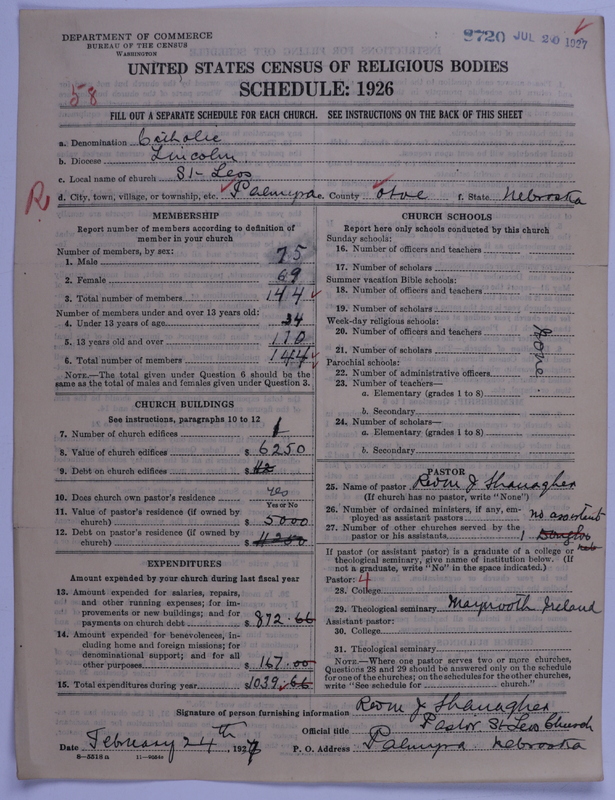 DEPARTMENT OF COMMERCE
BUREAU OF THE CENSUS
WASHINGTON
8720 JUL 20 1927
UNITED STATES CENSUS OF RELIGIOUS BODIES
SCHEDULE: 1926
58
FILL OUT A SEPARATE SCHEDULE FOR EACH CHURCH. SEE INSTRUCTIONS ON THE BACK OF THIS SHEET
a. Denomination Catholic
b. Diocese Lincoln
c. Local name of church St- Leos
R
d. City, town, village, or township, etc. Palmyra e. County Otoe f. State Nebraska
MEMBERSHIP
Report number of members according to definition of
member in your church
Number of members, by sex:
1. Male 75
2. Female 69
3. Total number of members 144
Number of members under and over 13 years old:
4. Under 13 years of age 34
5. 13 years old and over 110
6. Total number of members 144
NOTE.—The total given under Question 6 should be the
same as the total of males and females given under Question 3.
CHURCH BUILDINGS
See instructions, paragraphs 10 to 12
7. Number of church edifices 1
8. Value of church edifices $ 6250
9. Debt on church edifices $
10. Does church own pastor's residence yes
Yes or No
11. Value of pastor's residence (if owned by
church) $ 5000
12. Debt on pastor's residence (if owned by
church) $
EXPENDITURES
Amount expended by your church during last fiscal year
13. Amount expended for salaries, repairs,
and other running expenses; for im-
provements or new buildings; and for
payments on church debt $ 872.66
14. Amount expended for benevolences, in-
cluding home and foreign missions; for
denominational support; and for all
other purposes $ 167.00
15. Total expenditures during year $ 1039.66
CHURCH SCHOOLS
Report here only schools conducted by this church
Sunday schools:
16. Number of officers and teachers
17. Number of scholars
Summer vacation Bible schools:
18. Number of officers and teachers
19. Number of scholars
Week-day religious schools:
20. Number of officers and teachers
21. Number of scholars
none
Parochial schools:
22. Number of administrative officers
23. Number of teachers—
a. Elementary (grades 1 to 8)
b. Secondary
24. Number of scholars—
a. Elementary (grades 1 to 8)
b. Secondary
PASTOR
25. Name of pastor Revm J Shanagher
(If church has no pastor, write "None")
26. Number of ordained ministers, if any, em-
ployed as assistant pastors no assistant
27. Number of other churches served by the
pastor or his assistants 1 Douglas
Neb
If pastor (or assistant pastor) is a graduate of a college or
theological seminary, give name of institution below. (If
not a graduate, write "No" in the space indicated.)
Pastor: 4
28. College
29. Theological seminary Maynooth Ireland
Assistant pastor:
30. College
31. Theological seminary
NOTE.—Where one pastor serves two or more churches,
Questions 28 and 29 should be answered only on the schedule
for one of the churches; on the schedules for the other churches,
write "See schedule for church."
Signature of person furnishing information Revm J Shanagher
Official title Pastor St Leos Church
Date February 24th, 1927 P. O. Address Palmyra Nebraska
8—5518a